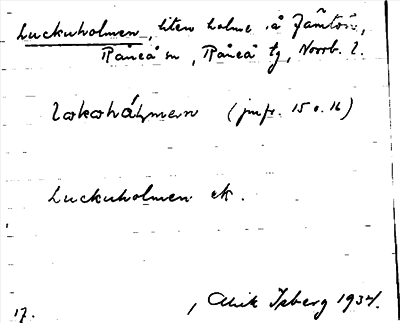 Luckuholmen, liten holme i å Jämtön,
Råneå sn, Råneå tg, Norrb. l.
(jmfr. 15 o. 16)
Luckuholmen ek.
17. , Isberg 1934.